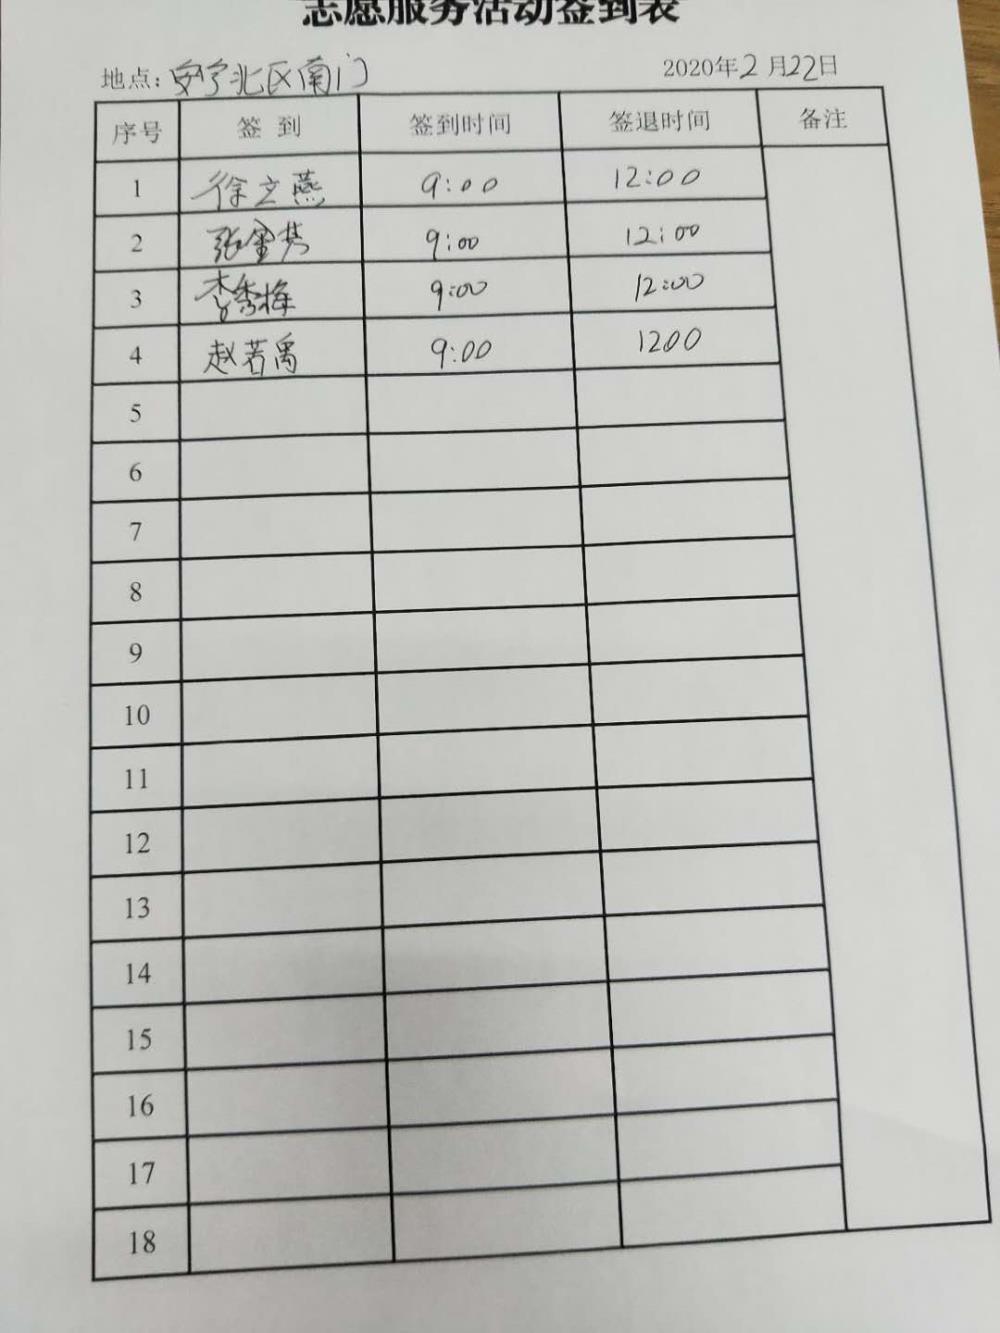 志愿服务活动签到表
地点：安宁北区南门 2020年2月22日
序号 签到 签到时间 签退时间 备注
1 徐立燕 9:00 12:00
2 张金 9:00 12:00
3 李秀梅 9:00 12:00
4 赵若禹 9:00 1200
5
6
7
8
9
10
11
12
13
14
15
16
17
18